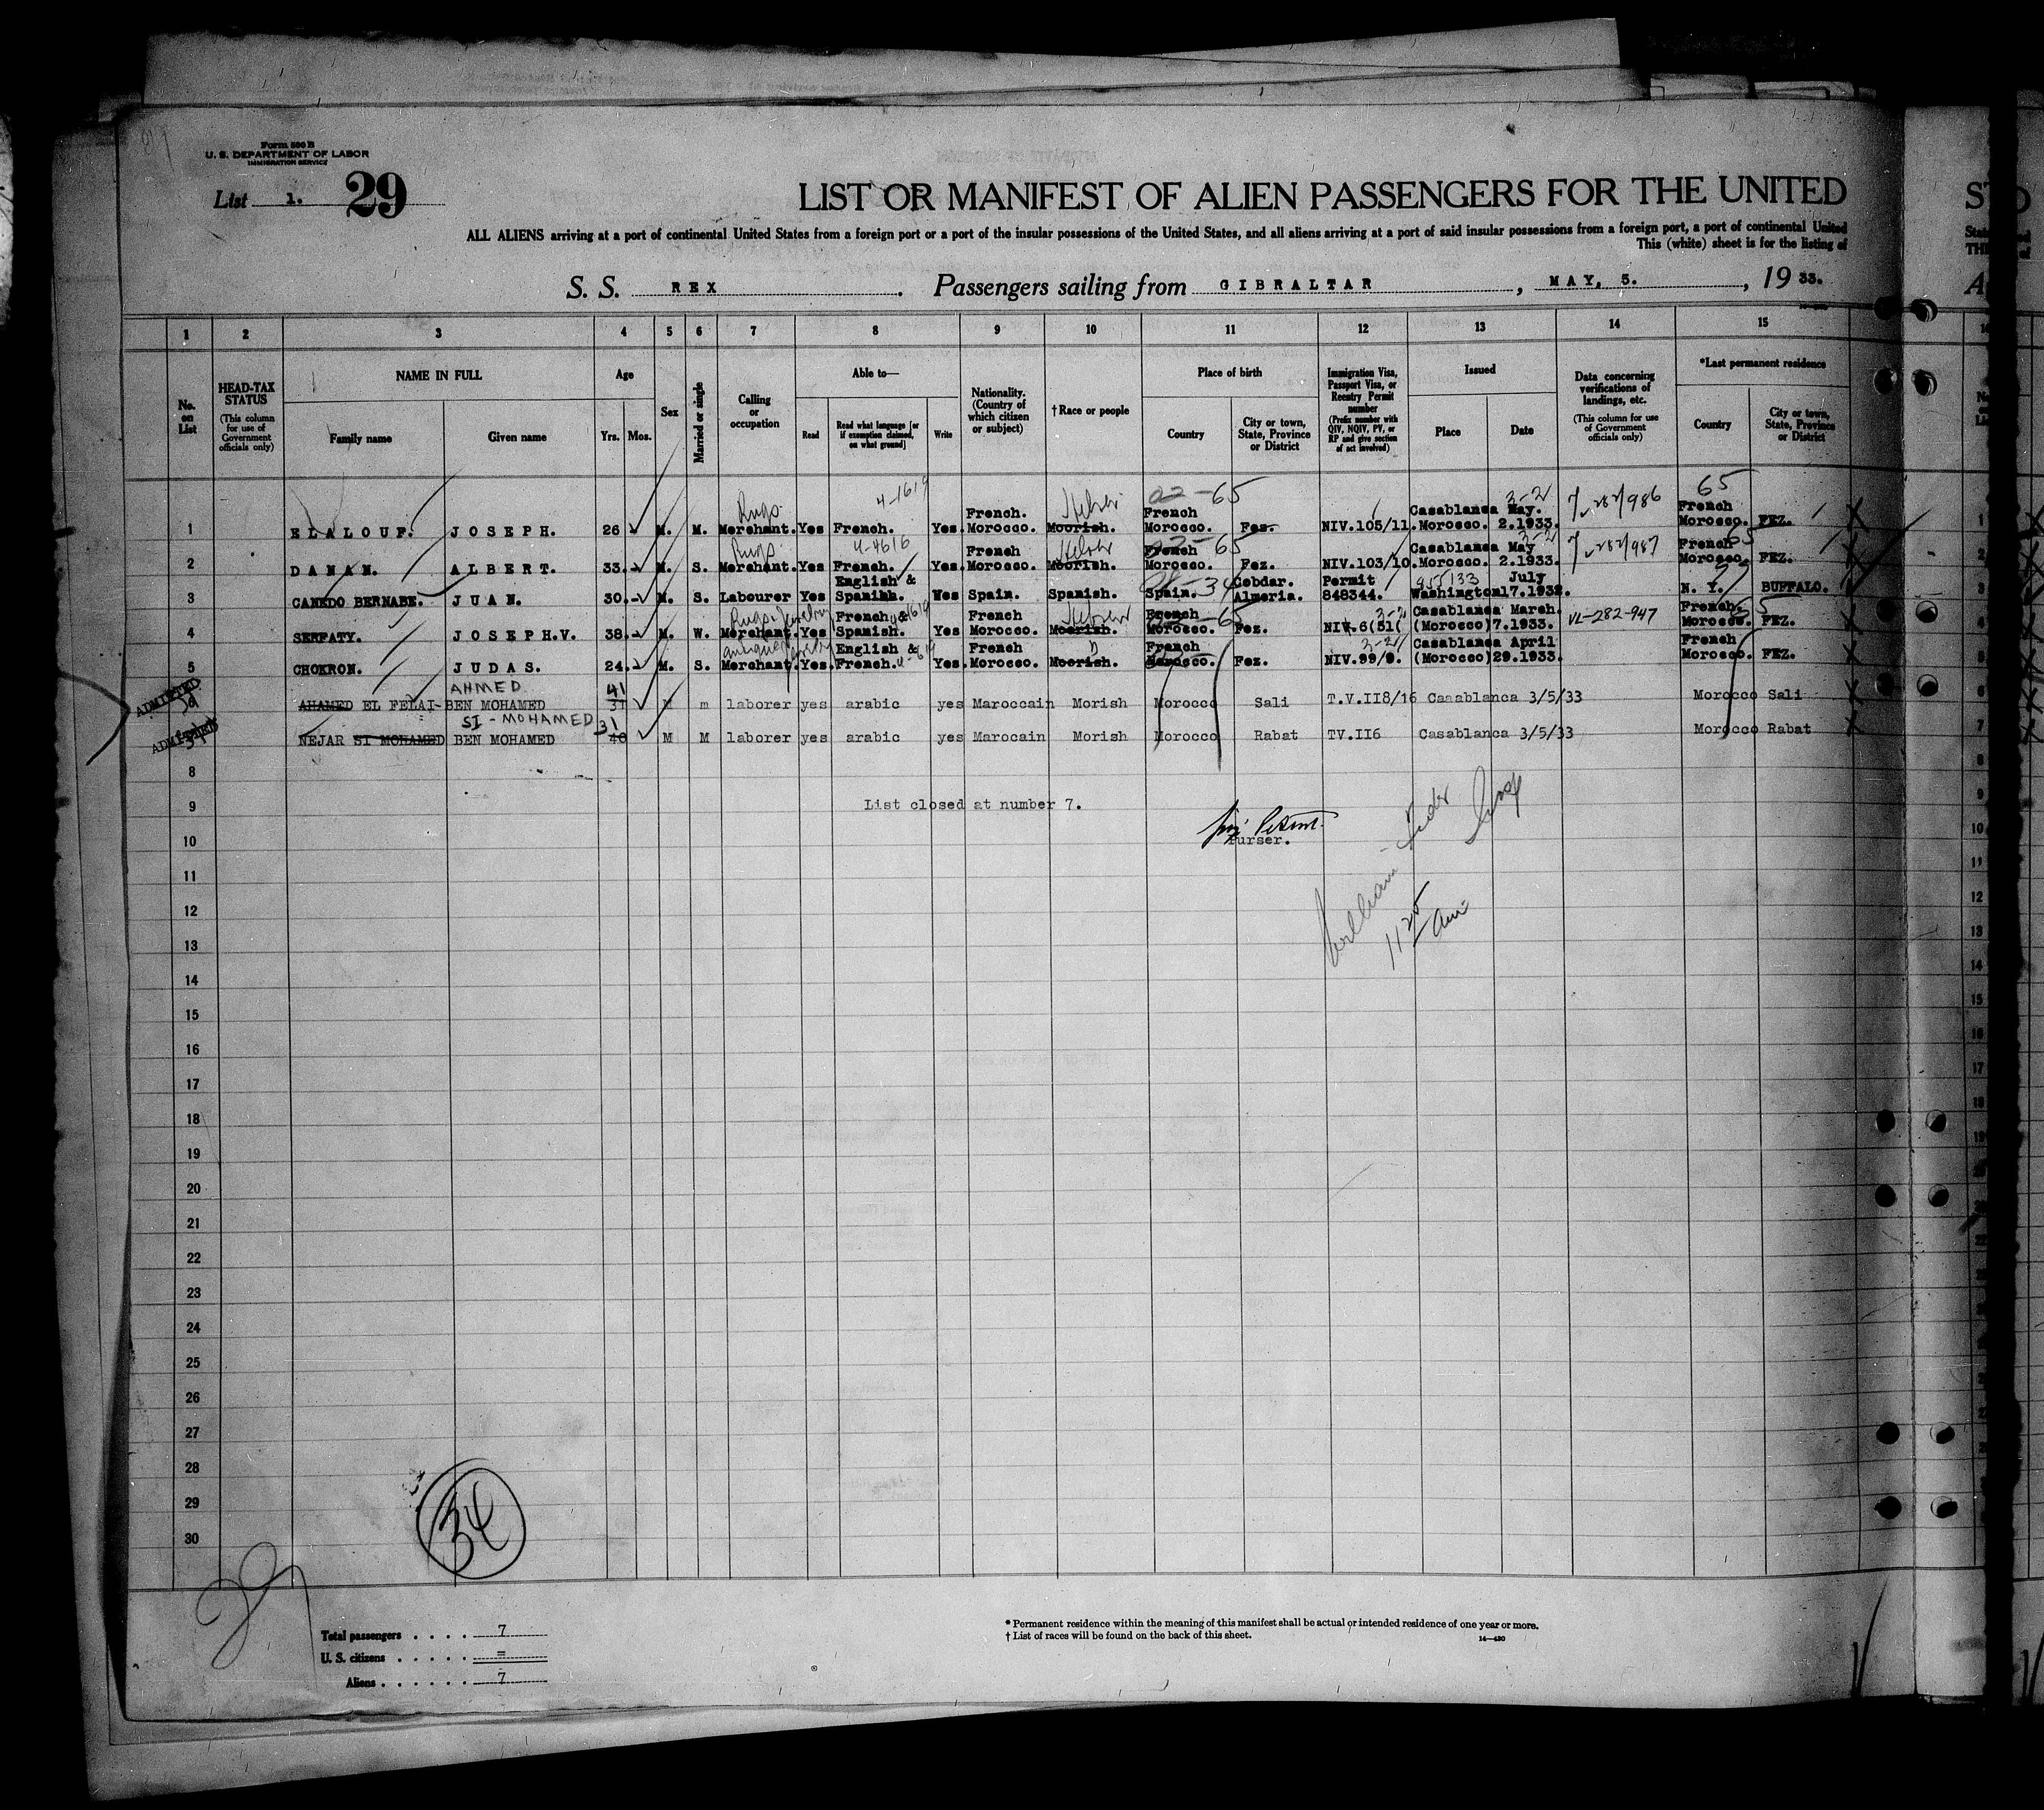 Form 500 B
U. S. DEPARTMENT OF LABOR
IMMIGRATION SERVICE
List 1. 29
LIST OR MANIFEST OF ALIEN PASSENGERS FOR THE UNITED
ALL ALIENS arriving at a port of continental United States from a foreign port or a port of the insular possessions of the United States, and all aliens arriving at a port of said insular possessions from a foreign port, a port of continental United
This (white) sheet is for the listing of
S. S. REX. Passengers sailing from GIBRALTAR, MAY, 5., 19 33.
1 2 3 4 5 6 7 8 9 10 11 12 13 14 15
No. on List
HEAD-TAX STATUS (This column for use of Government officials only)
NAME IN FULL Family name Given name
Age Yrs. Mos.
Sex
Married or single
Calling or occupation
Able to— Read Read what language [or if exemption claimed, on what ground] Write
Nationality. (Country of which citizen or subject)
†Race or people
Place of birth Country City or town, State, Province or District
Immigration Visa, Passport Visa, or Reentry Permit number (Prefix number with QIV, NQIV, PV, or RP and give section of act involved)
Issued Place Date
Data concerning verifications of landings, etc. (This column for use of Government officials only)
*Last permanent residence Country City or town, State, Province or District
1 ELALOUF. JOSEPH. 26 M. M. Rugs Merchant. Yes French. Yes. French. Morocco. Hebrew Moorish. French Morocco. Fez. NIV.105/11. Casablanca Morocco. May. 2.1933. French Morocco. FEZ.
2 DANAN. ALBERT. 33. M. S. Rugs Merchant. Yes French. Yes. French Morocco. Hebrew Moorish. French Morocco. Fez. NIV.103/10. Casablanca Morocco. May 2.1933. French Morocco. FEZ.
3 CANEDO BERNABE. JUAN. 30. M. S. Labourer Yes English & Spanihh. Yes Spain. Spanish. Spain. Cobdar. Almeria. Permit 848344. Washington July 17.1932. N. Y. BUFFALO.
4 SERFATY. JOSEPH.V. 38. M. W. Rugs-Jewelry Merchant. Yes French & Spanish. Yes French Morocco. Hebrew Moorish. French Morocco. Fez. NIV.6(51( Casablanca (Morocco) March. 7.1933. VL-282-947 French. Morocco. FEZ.
5 CHOKRON. JUDAS. 24. M. S. Merchant. Yes. English & French. Yes. French Morocco. Moorish. French Morocco. Fez. NIV.99/9. Casablanca (Morocco) April 29.1933. French Morocco. FEZ.
ADMITTED AHAMED EL FELAI- AHMED BEN MOHAMED 41 31 M m laborer yes arabic yes Maroccain Morish Morocco Sali T.V.II8/16 Casablanca 3/5/33 Morocco Sali
ADMITTED NEJAR SI MOHAMED SI - MOHAMED BEN MOHAMED 31 40 M M laborer yes arabic yes Marocain Morish Morocco Rabat TV.II6 Casablanca 3/5/33 Morocco Rabat
8
9 List closed at number 7.
10 Purser.
11
12
13
14
15
16
17
18
19
20
21
22
23
24
25
26
27
28
29
30
34
29
Total passengers . . . . 7
U. S. citizens . . . . . =
Aliens . . . . . . 7
* Permanent residence within the meaning of this manifest shall be actual or intended residence of one year or more.
† List of races will be found on the back of this sheet.
14—430